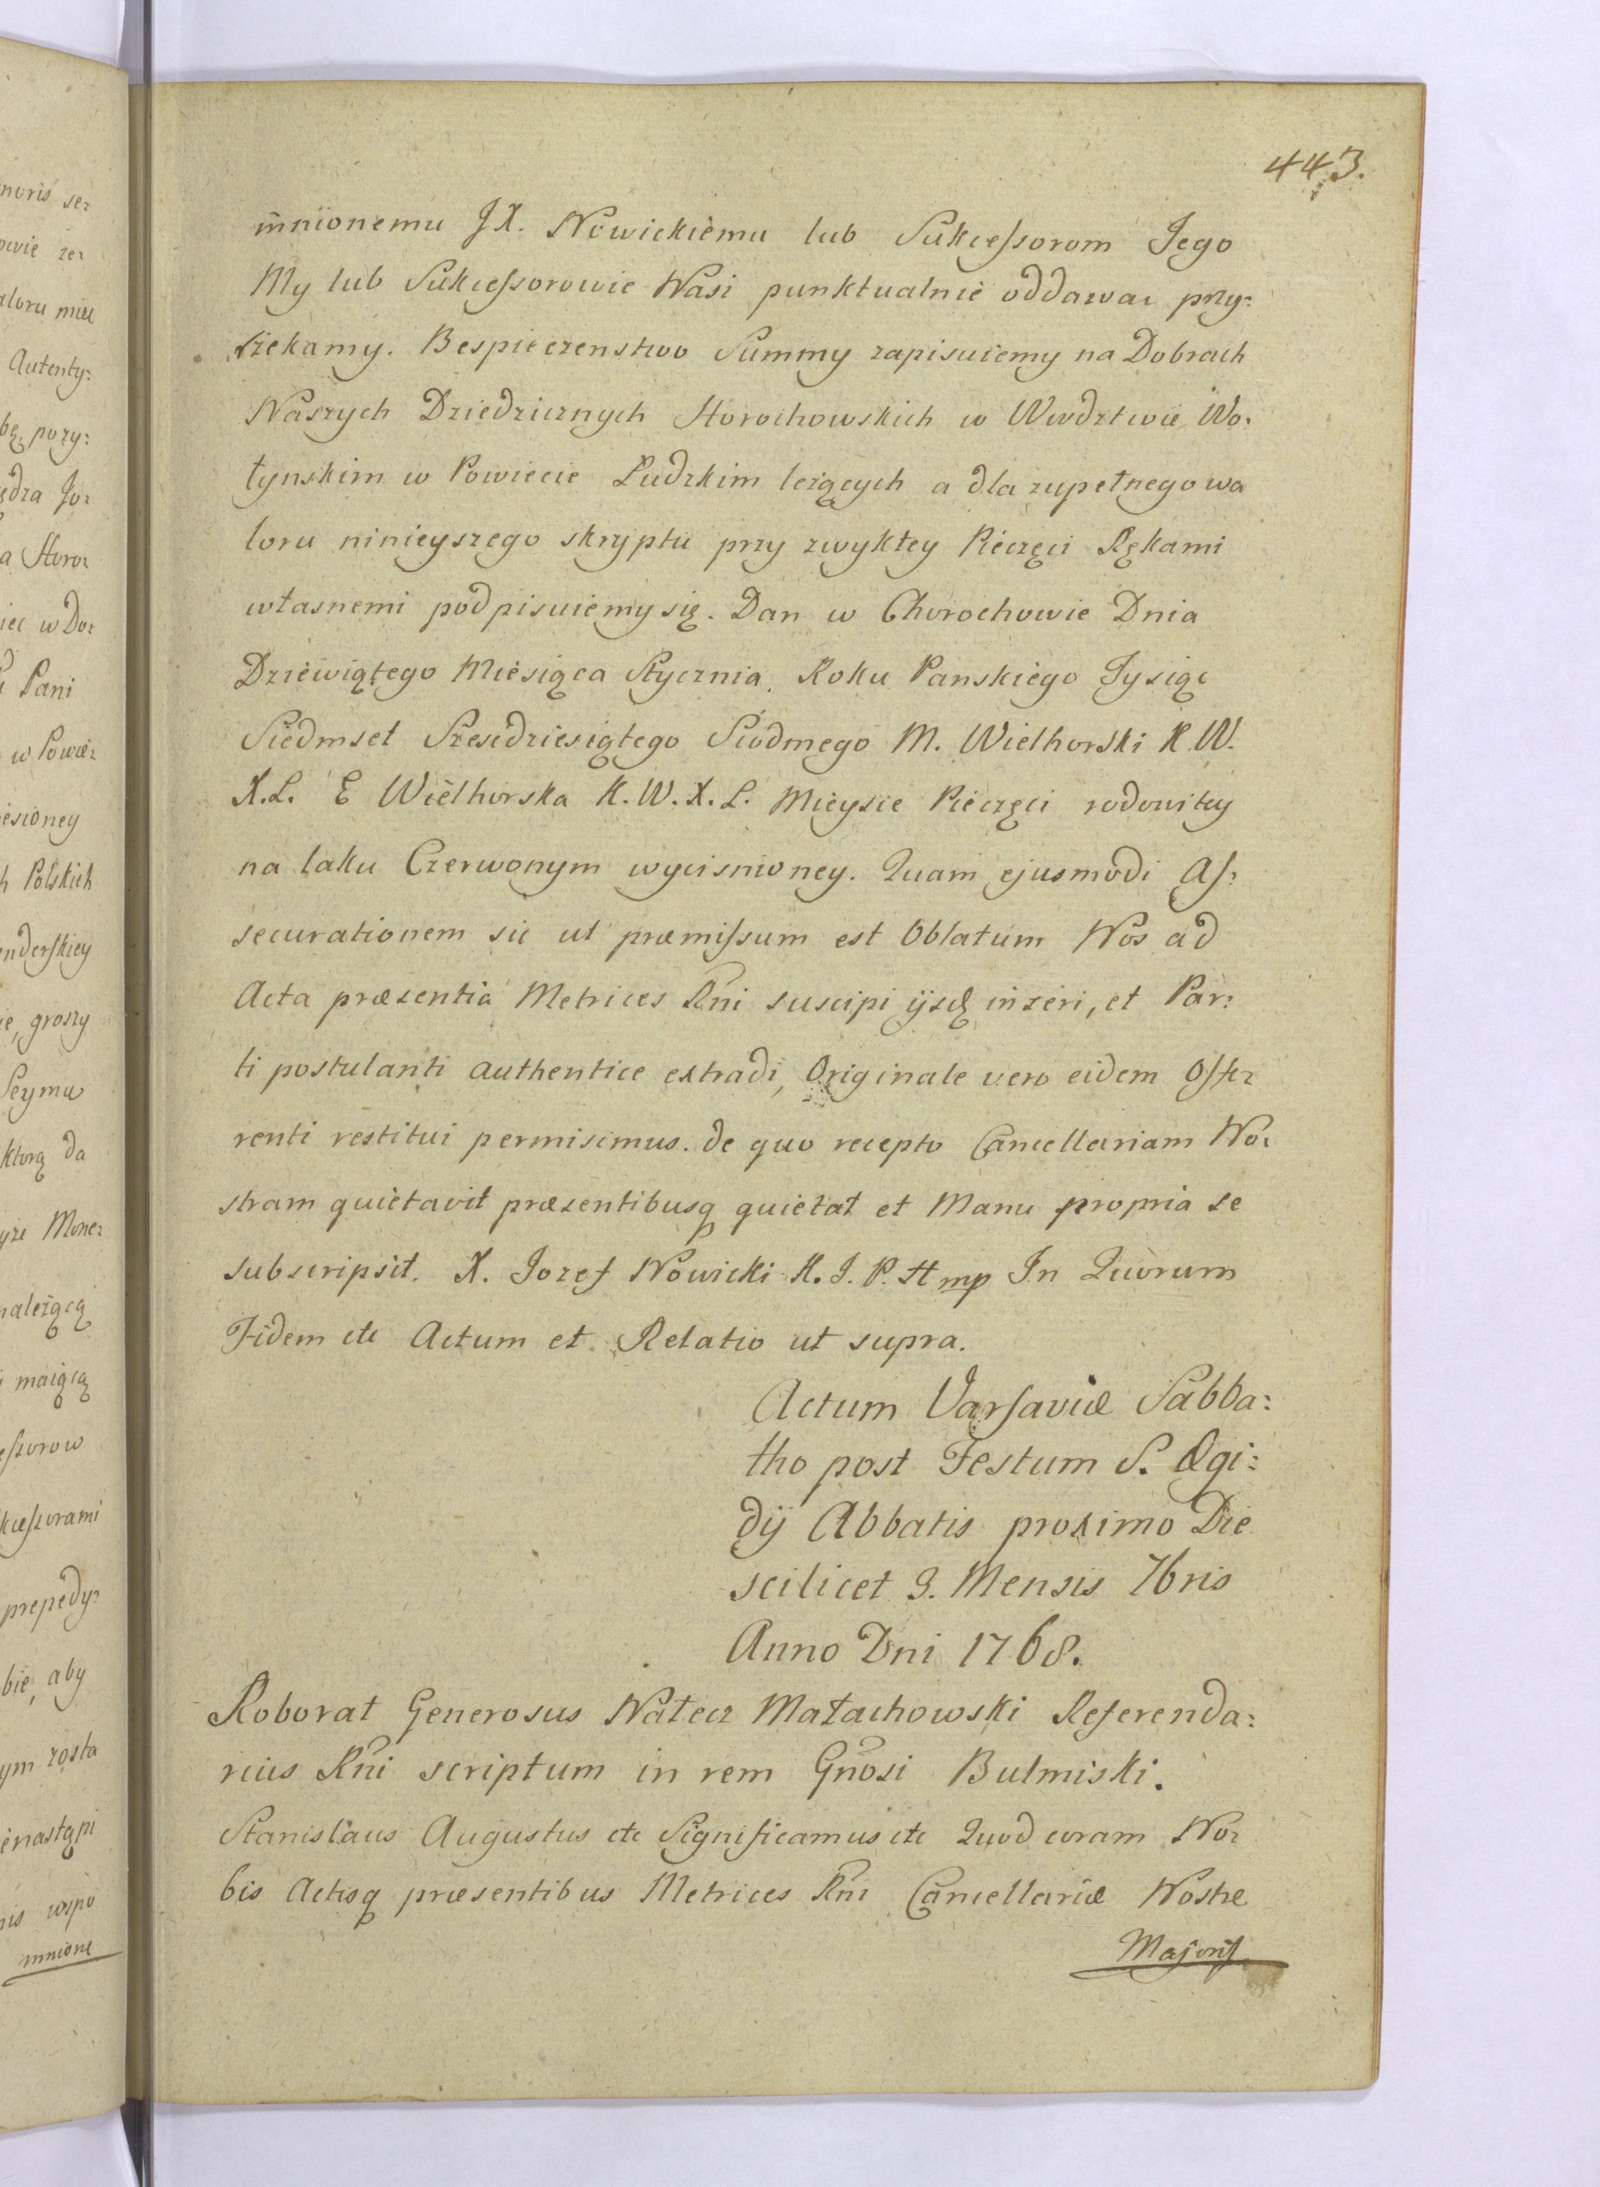 443.
mnionemu JX. Nowickiemu lub Sukcessorom Jego
My lub Sukcessorowie Nasi punktualnie oddawac przy:
rzekamy. Bespieczenstwo Summy zapisuiemy na Dobrach
Naszych Dziedzicznych Horochowskich w Wwdztwie Wo:
łynskim w Powiecie Łudzkim leżących a dla zupełnego wa
loru ninieyszego skryptu przy zwykłey Pieczęci Rękami
własnemi podpisuiemy się. Dan w Chorochowie Dnia
Dziewiątego Miesiąca Stycznia Roku Panskiego Tysiąc
Siedmset Szescdziesiątego Siodmego M. Wielhorski K. W.
X. L. E Wielhorska K. W. X. L. Mieysce Pieczęci rodowitey
na laku Czerwonym wycisnioney. Quam ejusmodi As:
securationem sic ut præmissum est Oblatum Nos ad
Acta præsentia Metrices Rni suscipi ijsq inseri, et Par:
ti postulanti authentice extradi, Originale vero eidem Offe:
renti restitui permisimus. de quo recepto Cancellariam No:
stram quietavit præsentibusq quietat et Manu propria se
subscripsit. X. Jozef Nowicki K. J. P. H mp In Quorum
Fidem etc Actum et Relatio ut supra.
Actum Varsaviæ Sabba:
tho post Festum S. Ægi:
dij Abbatis proximo Die
scilicet 3. Mensis 7bris
Anno Dni 1768.
Roborat Generosus Nałecz Małachowski Referenda:
rius Rni scriptum in rem Gnosi Bulmiski.
Stanislaus Augustus etc Significamus etc Quod coram No:
bis Actisq præsentibus Metrices Rni Cancellariæ Nostræ
Majoris